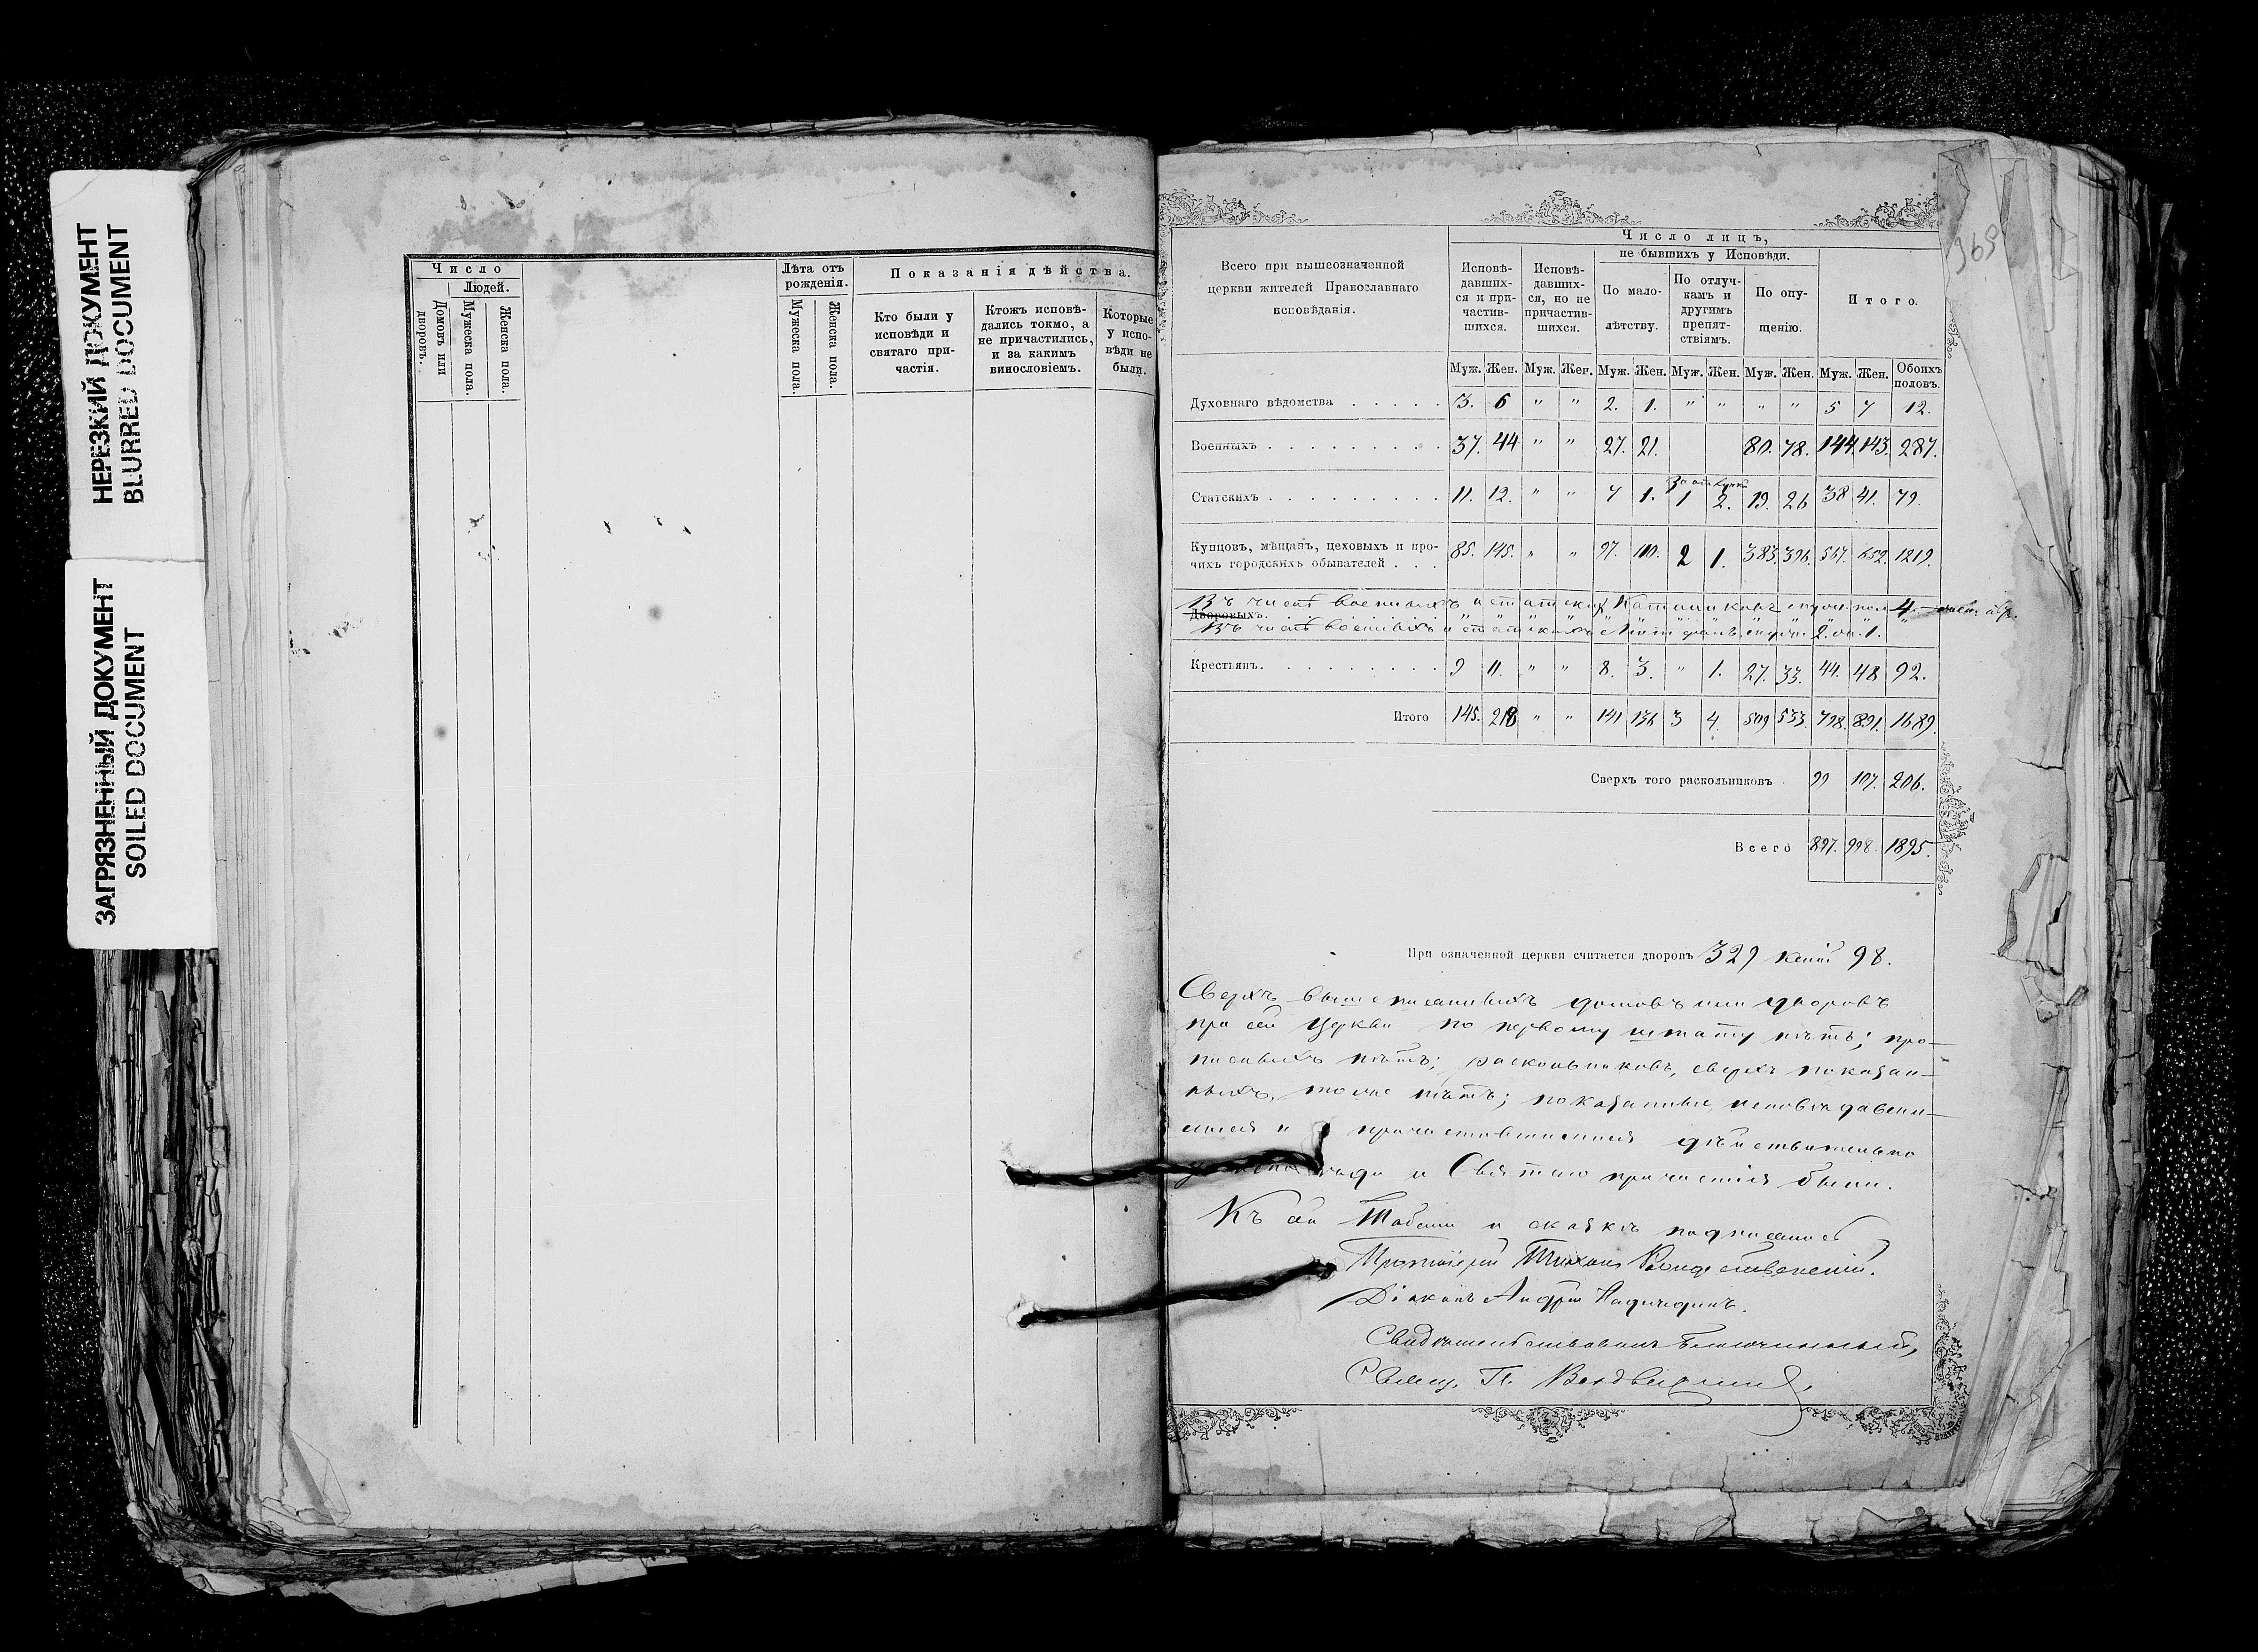 НЕРЕЗКИЙ ДОКУМЕНТ
BLURRED DOCUMENT
ЗАГРЯЗНЕННЫЙ ДОКУМЕНТ
SOILED DOCUMENT
Число
Людей.
Домовъ или дворовъ.
Мужеска пола
Женска пола.
Лѣта отъ рожденія.
Мужеска пола.
Женска пола.
Показанія дѣйства.
Кто были у исповѣди и святаго при-частія.
Ктожъ исповѣ-дались токмо, а не причастились, и за какимъ винословіемъ.
Которые у испо-вѣди не были.
369
Всего при вышеозначенной
церкви жителей Православнаго
исповѣданія.
Число лицъ,
не бывшихъ у Исповѣди.
Исповѣ-давших-ся и при-частив-шихся.
Исповѣ-давших-ся, но не причастив-шихся.
По мало-лѣтству.
По отлуч-камъ и другимъ препят-ствіямъ.
По опу-щенію.
Итого.
Муж. Жен. Муж. Жен. Муж. Жен. Муж. Жен. Муж. Жен. Муж. Жен. Обоихъ половъ.
Духовнаго вѣдомства 3. 6 " " 2. 1. " " " " 5 7 12.
Военныхъ 37. 44 " " 27. 21. 80. 78. 144. 143. 287.
Статскихъ 11. 12. " " 7 1. 1 2. 19. 26 38 41. 79.
Купцовъ, мѣщанъ, цеховыхъ и про-
чихъ городскихъ обывателей 85. 145. " " 97. 110. 2 1. 383. 396. 567. 652. 1219.
Въ числѣ военныхъ и статскихъ 4.
Дворовыхъ.
Въ числѣ военныхъ и статскихъ 2. 1.
Крестьянъ. 9 11. " " 8. 3. " 1. 27. 33. 44. 48 92.
Итого 145. 218 " " 141 136 3 4 509 533. 798. 891. 1689.
Сверхъ того раскольниковъ 99 107. 206.
Всего 897. 998. 1895.
При означенной церкви считается дворовъ 329 98.
Сверхъ вышеписанныхъ домовъ или дворовъ
при сей Церкви по первому штату нѣтъ; про-
писныхъ нѣтъ; раскольниковъ, сверхъ показан-
ныхъ, тоже нѣтъ; показанные исповѣдавши-
мися и причастившимися дѣйствительно
у исповѣди и Святаго причастія были.
Къ сей Табели и сказкѣ подписались
Протоіерей Тихонъ Рождественскій.
Діаконъ Андрей
Свидѣтельствовалъ Благочинный,
Священ. П. Воздвиженскій